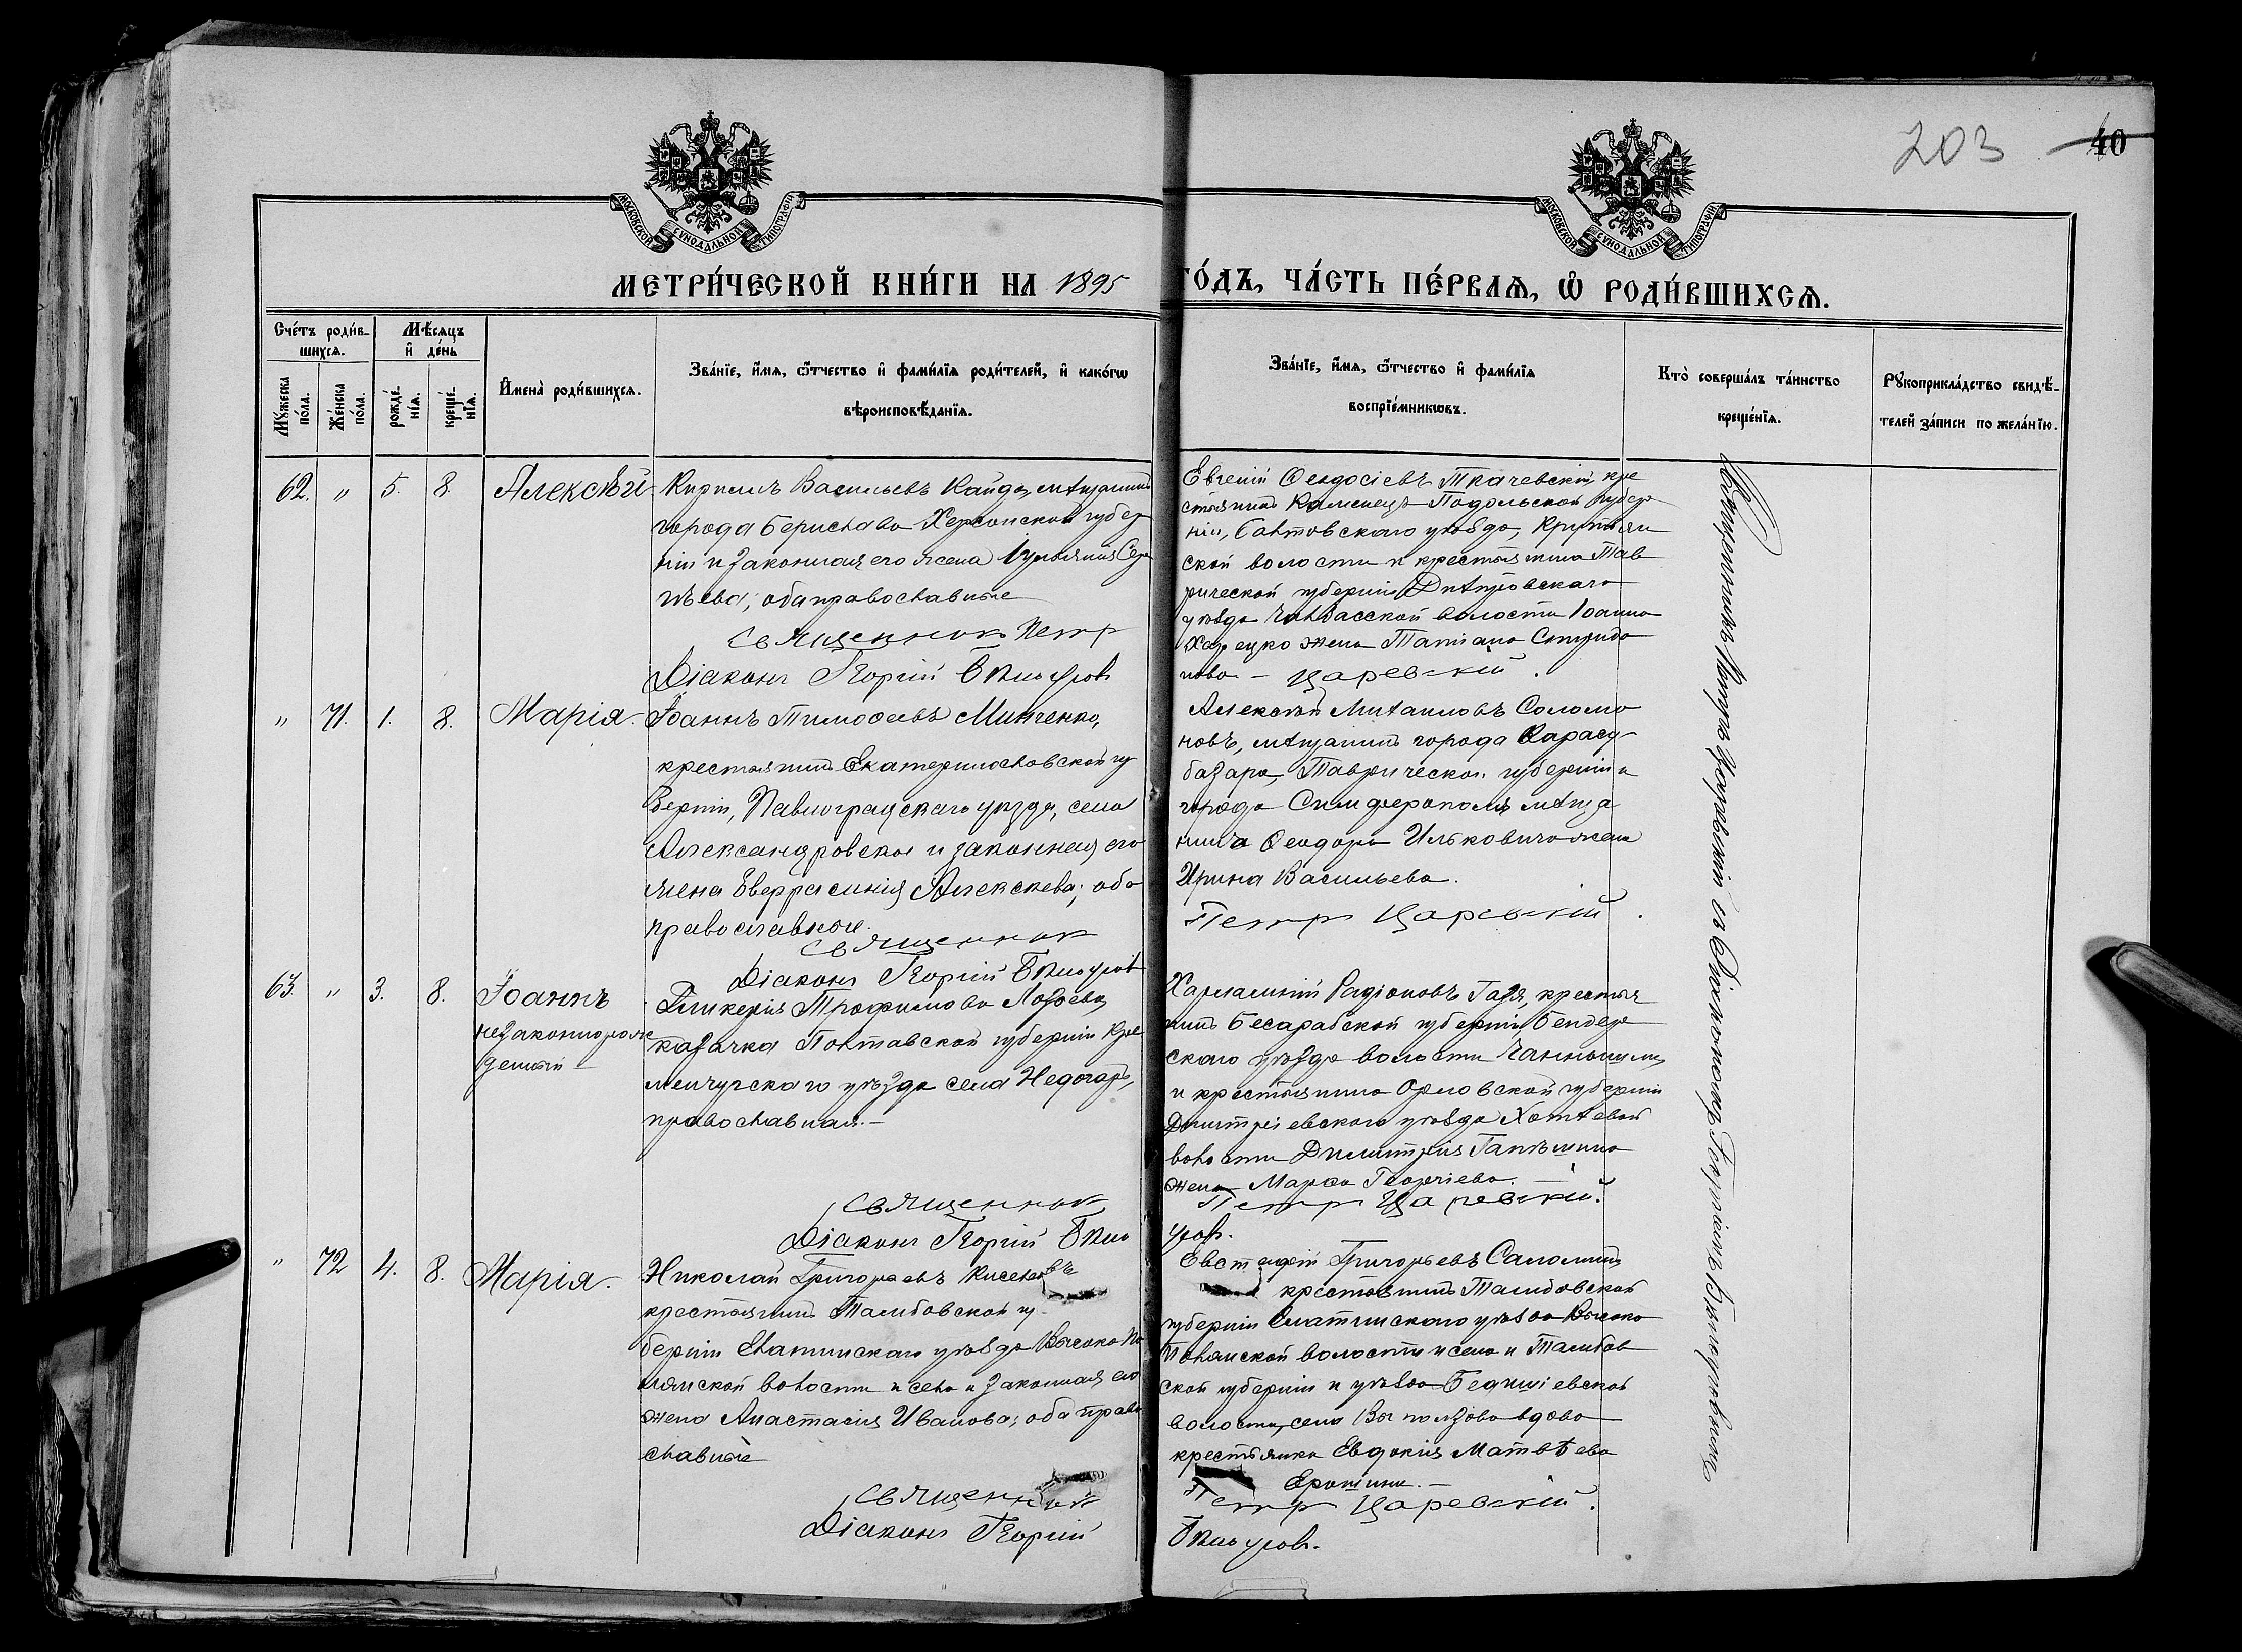 203
40
МОСКОВСКОЙ СУНОДАЛЬНОЙ ТИПОГРАФІИ
МОСКОВСКОЙ СУНОДАЛЬНОЙ ТИПОГРАФІИ
МЕТРИ́ЧЕСКОЙ КНИ́ГИ НА 1895 ГО́ДЪ, ЧА́СТЬ ПЕ́РВАѦ, Ѽ РОДИ́ВШИХСѦ.
Сче́тъ роди́в-
шихсѧ.
Мꙋжеска
по́ла.
Же́нска
по́ла.
Мѣ́сѧцъ
и҆ де́нь
рожде́-
нїѧ.
креще́-
нїѧ.
И҆мена̀ роди́вшихсѧ.
Зва́нїе, и҆́мѧ, ѻ҆́тчество и҆ фами́лїѧ роди́телей, и҆ како́гѡ
вѣроисповѣ́данїѧ.
Зва́нїе, и҆́мѧ, ѻ҆́тчество и҆ фами́лїѧ
воспрїе́мникѡвъ.
Кто̀ соверша́лъ та́инство
креще́нїѧ.
Рꙋкоприкла́дство свидѣ́-
телей за́писи по жела́нїю.
62. " 5. 8. Алексѣй
Кириллъ Васильевъ Кайда, мѣщанинъ
города Берислава Херсонской губер
ніи и законная его жена Іуліанія Сер
гѣева; оба православные
Священникъ Петр
Діаконъ Георгій
Евгеній Ѳеодосіевъ Ткачевскій, кре
стьянинъ Каменецъ-Подольской губер
ніи, Балтовскаго уѣзда, Крутян
ской волости и крестьянина Тав
рической губерніи Днѣпровскаго
уѣзда Чалбасской волости Іоанна
жена Татіана Спиридо
нова – Царевскій.
" 71. 1. 8. Марія.
Іоаннъ Тимоѳеевъ Минченко,
крестьянинъ Екатеринославской гу
берніи, Павлоградскаго уѣзда, села
Александровска и законная его
жена Евфрасинія Алексѣева; оба
православные.
Священник
Діаконъ Георгій
Алексѣй Михаиловъ Соломо
новъ, мѣщанинъ города Карасу-
базара, Таврической губерніи и
города Симферополя мѣща
нина Ѳеодора Ильковича жена
Ирина Васильева.
Петр Царевскій.
63. " 3. 8. Іоаннъ
незаконнорож
денный
Гликерія Трофимова Лобоева,
казачка Полтавской губерніи Кре
менчугскаго уѣзда села Недогарь,
православная.–
Священник
Діаконъ Георгій
Харлампій Радіоновъ Газя, крестья
нинъ Бесарабской губерніи Бендер
скаго уѣзда волости
и крестьянина Орловской губерніи
Дмитріевскаго уѣзда Хотѣевой
волости Димитрія
жена Марѳа Георгіева.–
Петр Царевскій.
" 72 4. 8. Марія.
Николай Григорьевъ Киселевъ
крестьянинъ Тамбовской гу-
берніи Елатинскаго уѣзда Высоко-По
лянской волости и села и законная его
жена Анастасія Иванова; оба право
славные
Священник
Діаконъ Георгій
Евстафій Григорьевъ Саломинъ
крестьянинъ Тамбовской
губерніи Елатинскаго уѣзда Высоко
Полянской волости и села и Тамбов
ской губерніи и уѣзда
волости, села вдова
крестьянка Евдокія Матвѣева
Еропкина.–
Петр Царевскій.
Священникъ Петръ Царевскій съ Діакономъ Георгіемъ